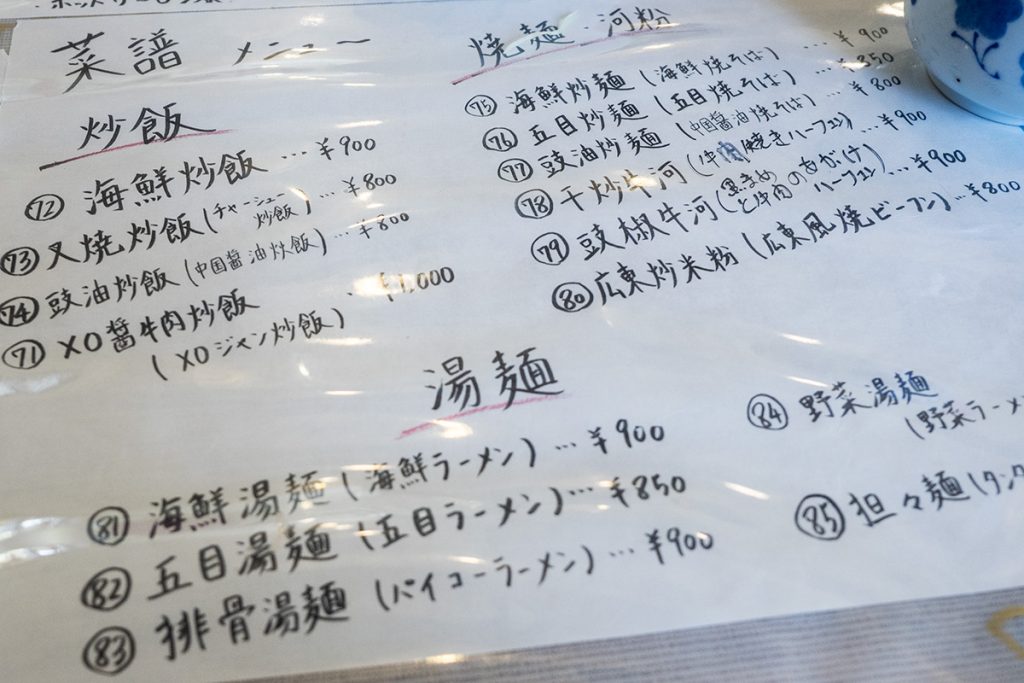 菜譜 メニュー
炒飯
72 海鮮炒飯 … ¥900
73 叉焼炒飯 (チャーシュー炒飯) … ¥800
74 豉油炒飯 (中国醤油炒飯) … ¥800
71 XO醤牛肉炒飯 … ¥1,000
(XOジャン炒飯)
焼麺・河粉
75 海鮮炒麺 (海鮮焼そば) … ¥900
76 五目炒麺 (五目焼そば) … ¥850
77 豉油炒麺 (中国醤油焼そば) … ¥800
78 干炒牛河 (牛肉焼きハーフェン) … ¥900
79 豉椒牛河 (黒まめと牛肉のあがけハーフェン) … ¥900
80 広東炒米粉 (広東風焼ビーフン) … ¥800
湯麺
81 海鮮湯麺 (海鮮ラーメン) … ¥900
82 五目湯麺 (五目ラーメン) … ¥850
83 排骨湯麺 (パイコーラーメン) … ¥900
84 野菜湯麺
(野菜ラーメ
85 担々麺 (タンタ